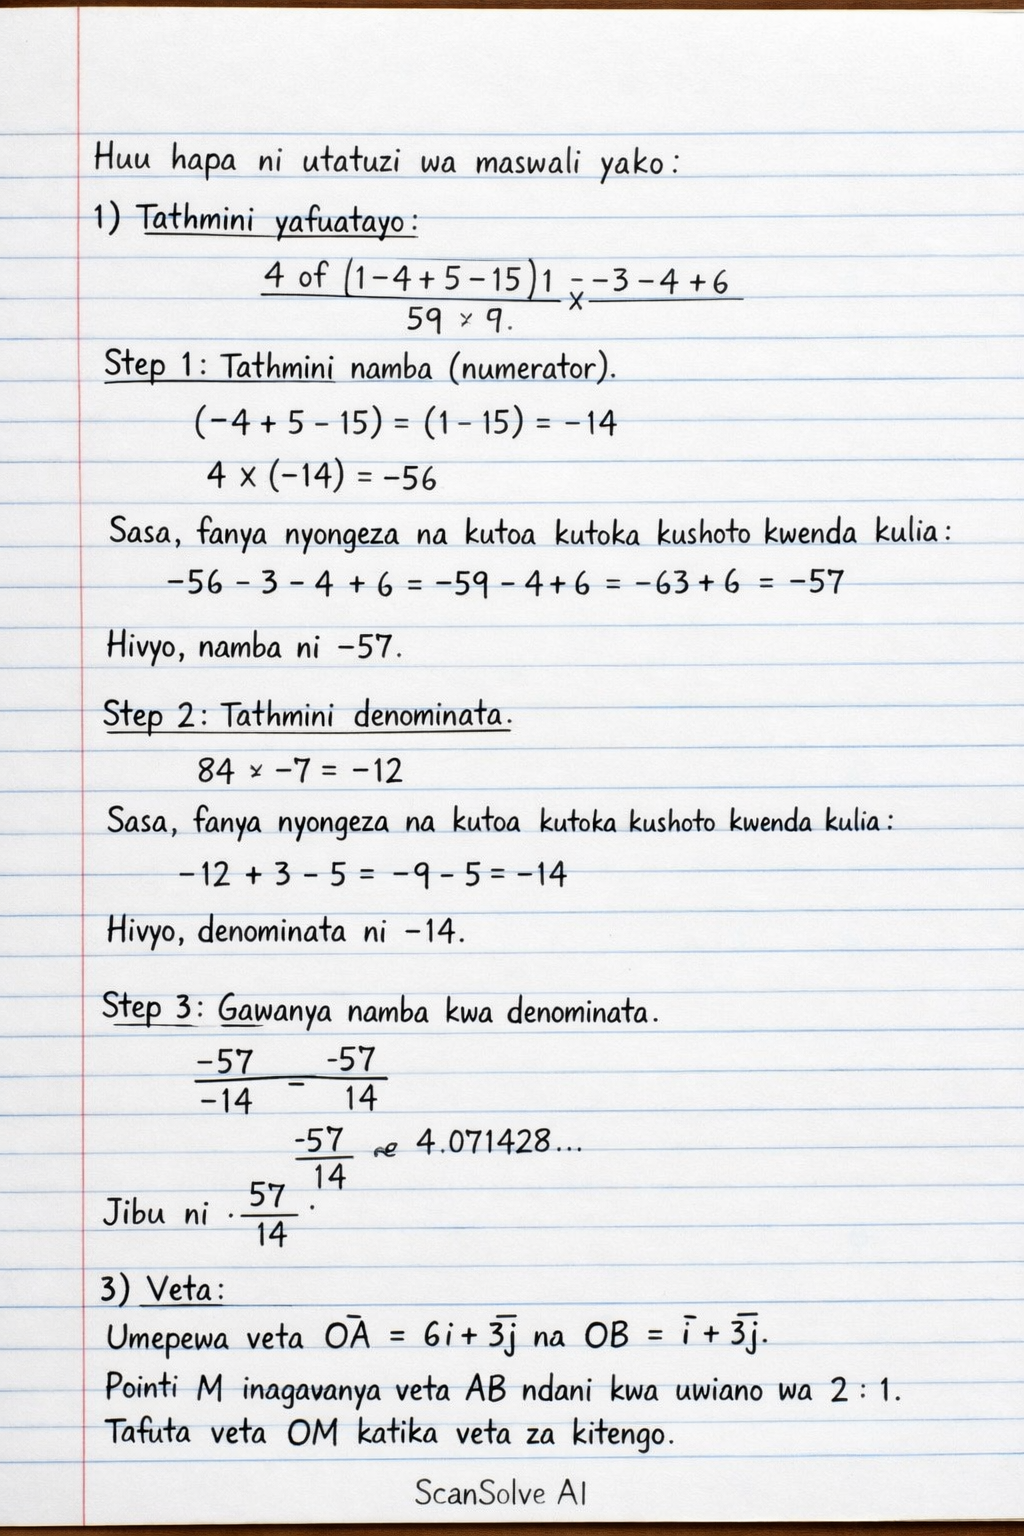 Huu hapa ni utatuzi wa maswali yako:
1) Tathmini yafuatayo:
4 of (1-4+5-15)1 - -3-4+6
x
59 × 9.
Step 1: Tathmini namba (numerator).
(-4+5-15) = (1-15) = -14
4 x (-14) = -56
Sasa, fanya nyongeza na kutoa kutoka kushoto kwenda kulia:
-56 - 3 - 4 + 6 = -59 - 4+6 = -63+6 = -57
Hivyo, namba ni -57.
Step 2: Tathmini denominata.
84 × -7 = -12
Sasa, fanya nyongeza na kutoa kutoka kushoto kwenda kulia:
-12 + 3 - 5 = -9 - 5 = -14
Hivyo, denominata ni -14.
Step 3: Gawanya namba kwa denominata.
-57 -57
-14 - 14
-57 4.071428...
14
Jibu ni . 57 .
14
3) Veta:
Umepewa veta OĀ = 6i + 3j̅ na OB = i̅ + 3j̅.
Pointi M inagavanya veta AB ndani kwa uwiano wa 2 : 1.
Tafuta veta OM katika veta za kitengo.
ScanSolve AI